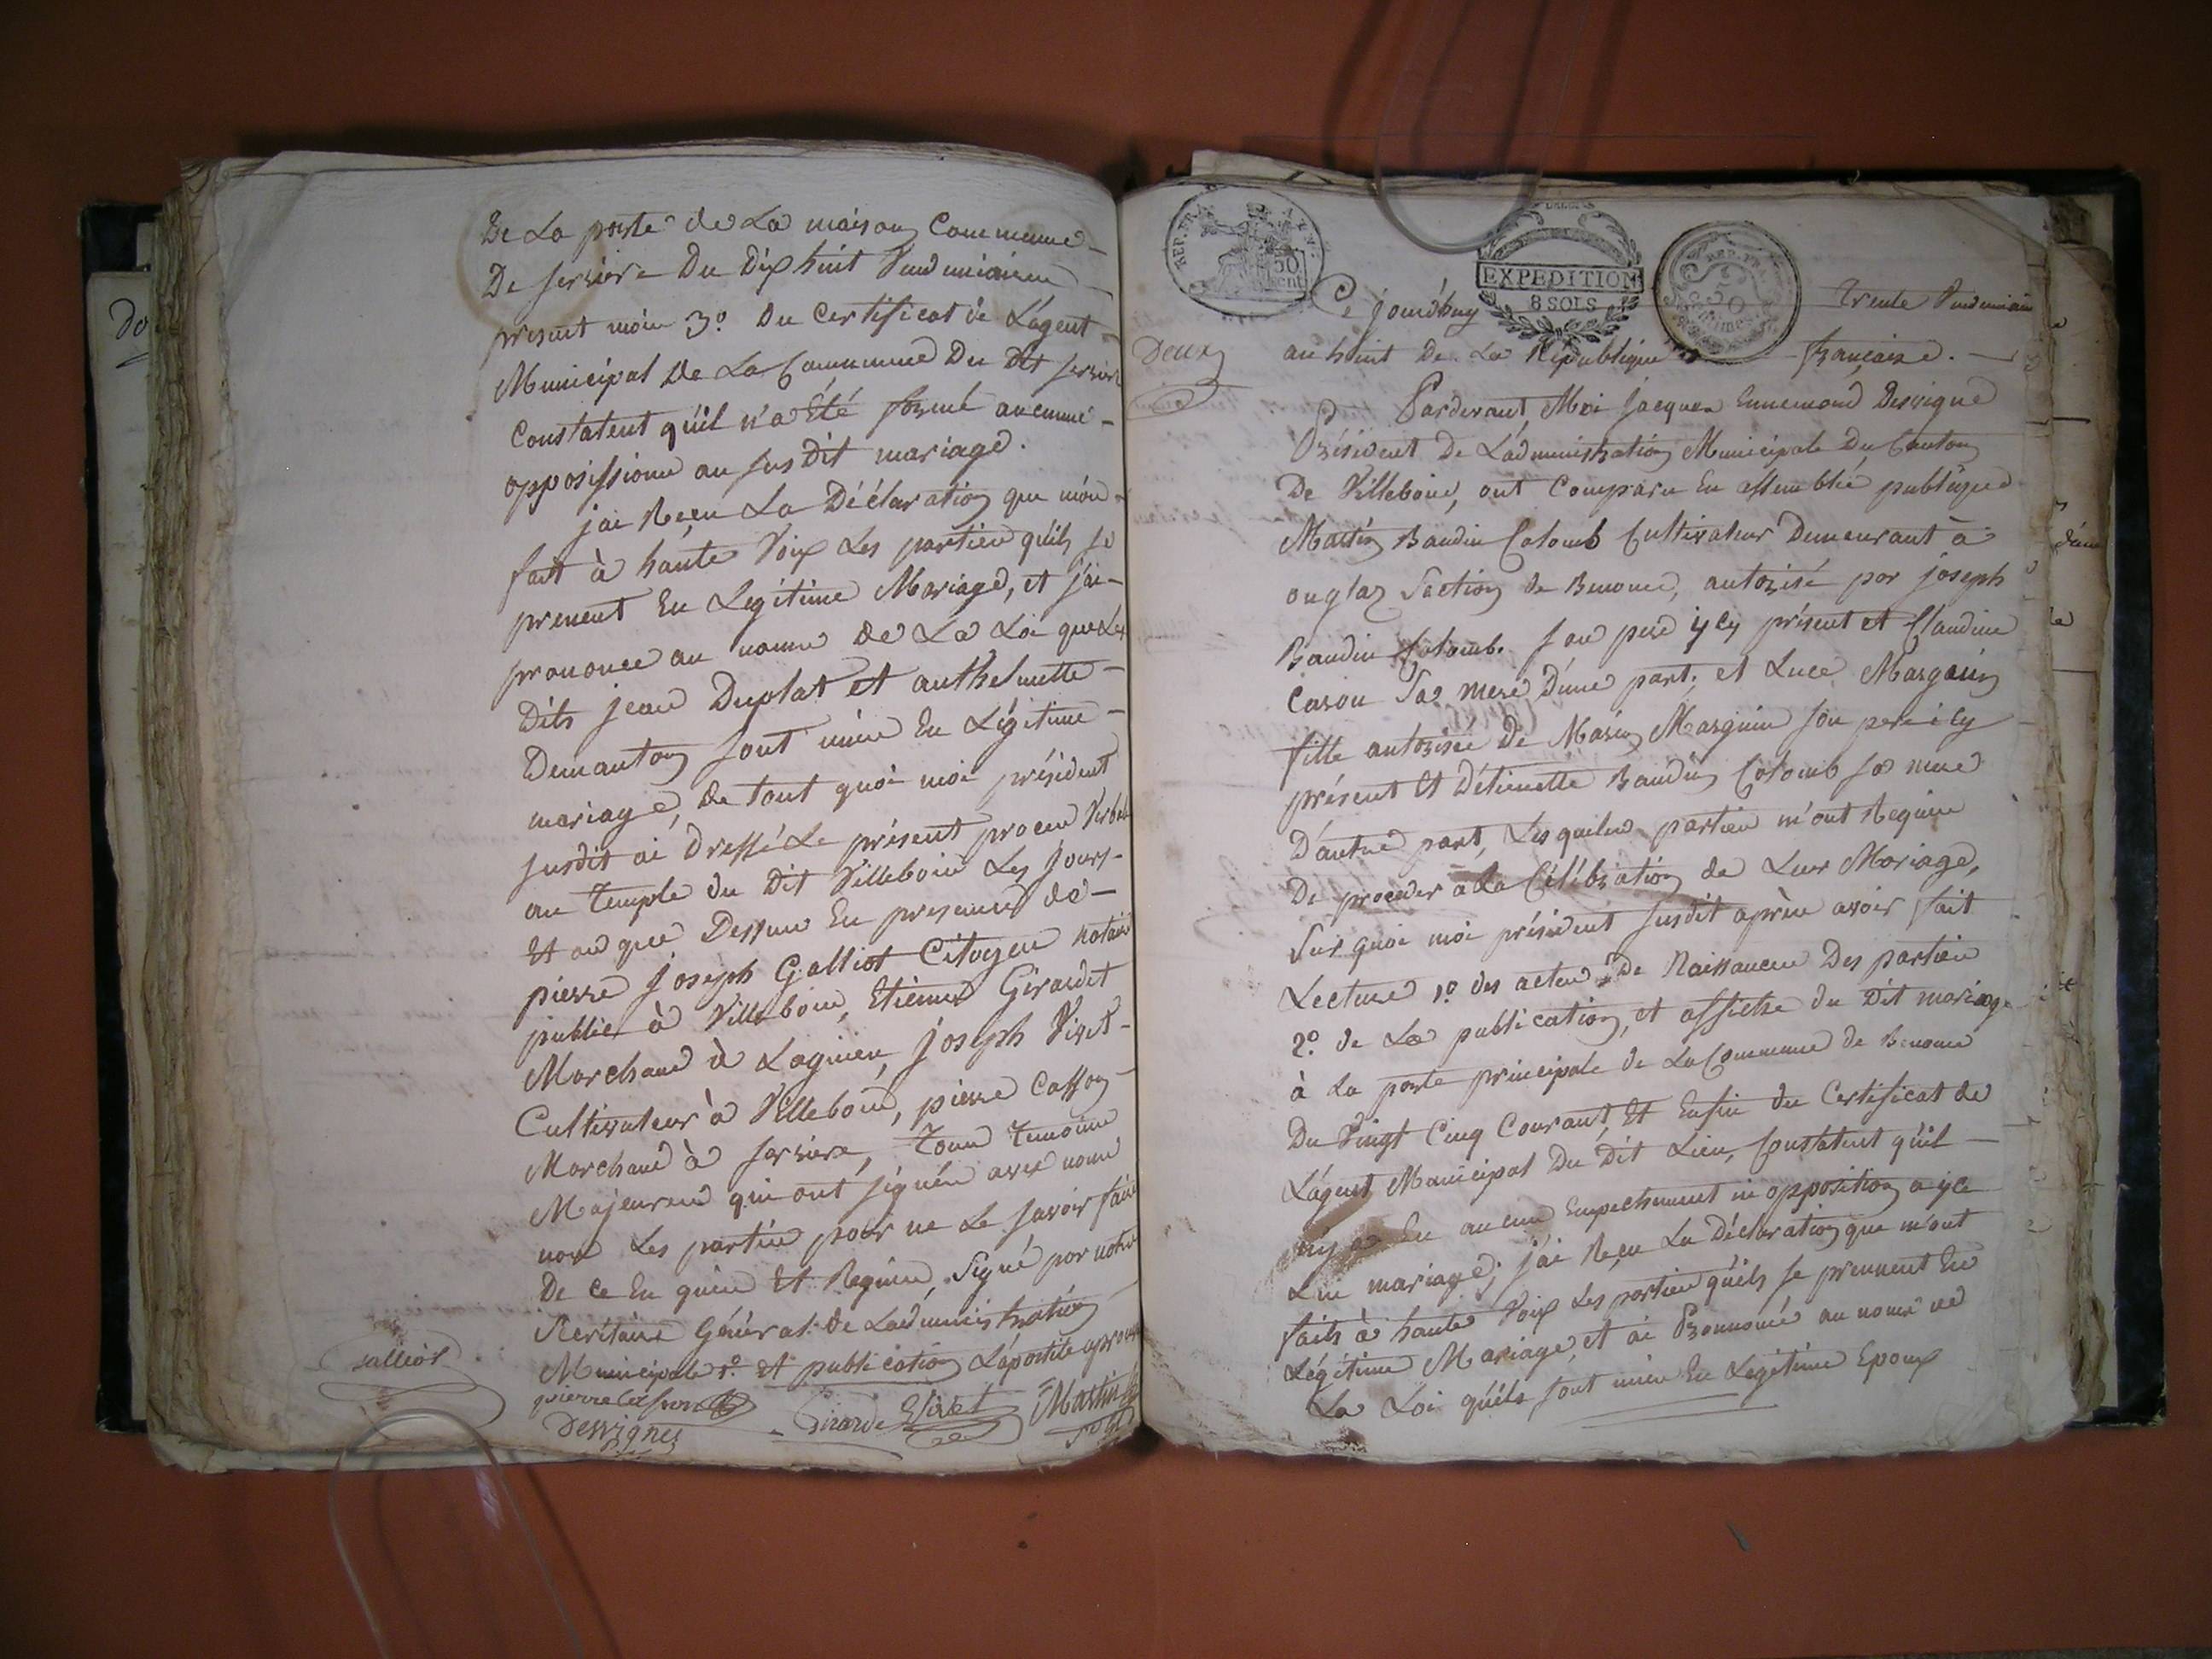 De La porte de La maison Commune
De serriere Du Dix huit Vendemiaire
present mois 3o. Du Certificat de L'agent
Municipal De La Commune Du Dit serriere
Constatent qu'il n'a Eté formé aucunne
opposissione au susdit mariage.
jai Reçu La Déclaration que m'on
fait à haute Voix Les partien qu'ils se
prenent En Legitime Mariage, et j'ai
prononce au nome de La Loi que Les
Dits jean Duplat et anthelmette
Demanton sont unie En Légitime
mariage, De tout quoi moi président
susdit ai Dressé Le présent proces Verbal
au temple du Dit Villeboie Les jours
Et an que Dessus En presence de
pierre joseph Galliot Citoyen notaire
public à Villeboie, Etienne Girardet
Marchand à Lagnieu, joseph Viret
Cultivateur à Villeboie, pierre Casson
Marchand à serriere, tous temoins
Majeures qui ont signés avec nous
non Les parties pour ne Le savoir faire
De ce En quies Et Requies, signé par notre
Secritaire Général de Ladministration
Municipale 1o. et publication L'apostile aprouvé
Galliot
pierre Casson
Girarde
Viret
Martin
Dessignes
REP. FRA
50
cent
EXPEDITION
8 SOLS
REP. FRA
50
centimes
Ce jourd'huy Trente Vendemiaire
Deux
an huit De La République francaise.
Pardevant Moi Jacques Ennemond Dessigne
Président De L'administration Municipale Du Canton
De Villeboie, ont Comparu En assemblée publique
Martin Baudin Colomb Cultivateur Demeurant à
ouglaz Section de Benonce, autorisé par joseph
Baudin Colomb. son pere ycy présent et Claudine
Cason Sa mere D'une part; et Luce Marguin
fille autorisée De Marin Marguin son pere icy
présent Et D'étiennette Baudin Colomb sa mere
D'autre part, Lesquelles partien m'ont Requise
De proceder a La Célébration de Leur Mariage,
Sur quoi moi président susdit après avoir fait
Lecture 1o des actes De Naissances Des partien
2o. de La publication, et affiche du Dit mariage
à La porte principale de La Commune de Benonce
Du Vingt Cinq Courant, Et Enfin du Certificat de
L'agent Municipal Du Dit Lieu, Constatent qu'il
ny a Eu aucun Empechement ni opposition a yce
Lui mariage; j'ai Reçu La Déclaration que m'ont
faits à haute Voix Les partien qu'ils se prennent En
Légitime Mariage, et ai Prononcé au nome de
La Loi qu'ils sont unie En Legitime Epoux